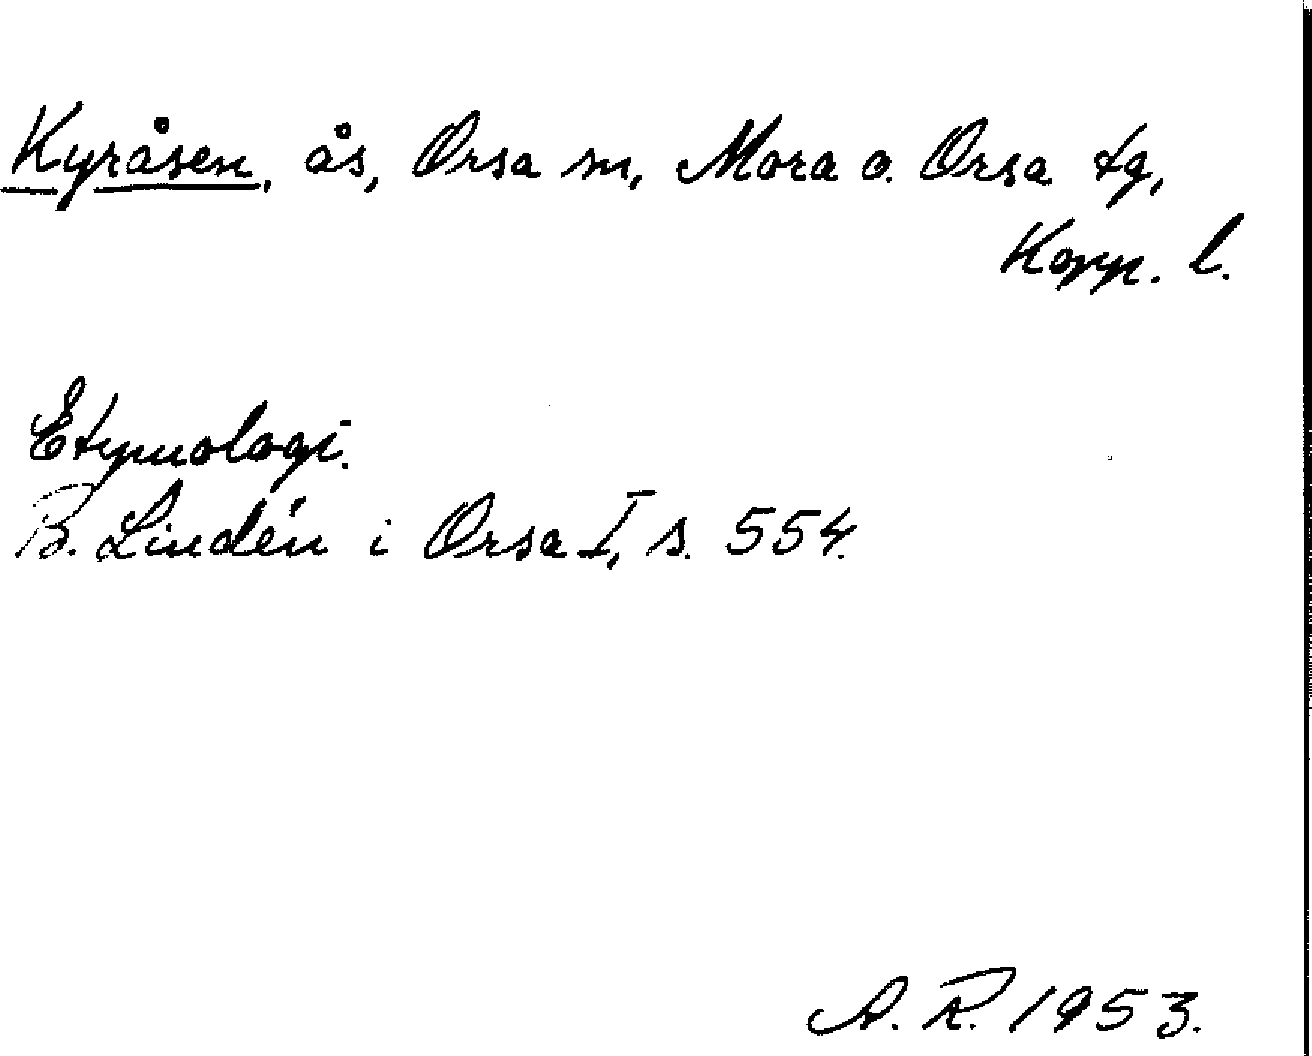 Kyråsen, ås, Orsa sn, Mora o. Orsa tg,
Kopp. l.
Etymologi.
B. Lindén i Orsa I, s. 554.
A. R. 1953.